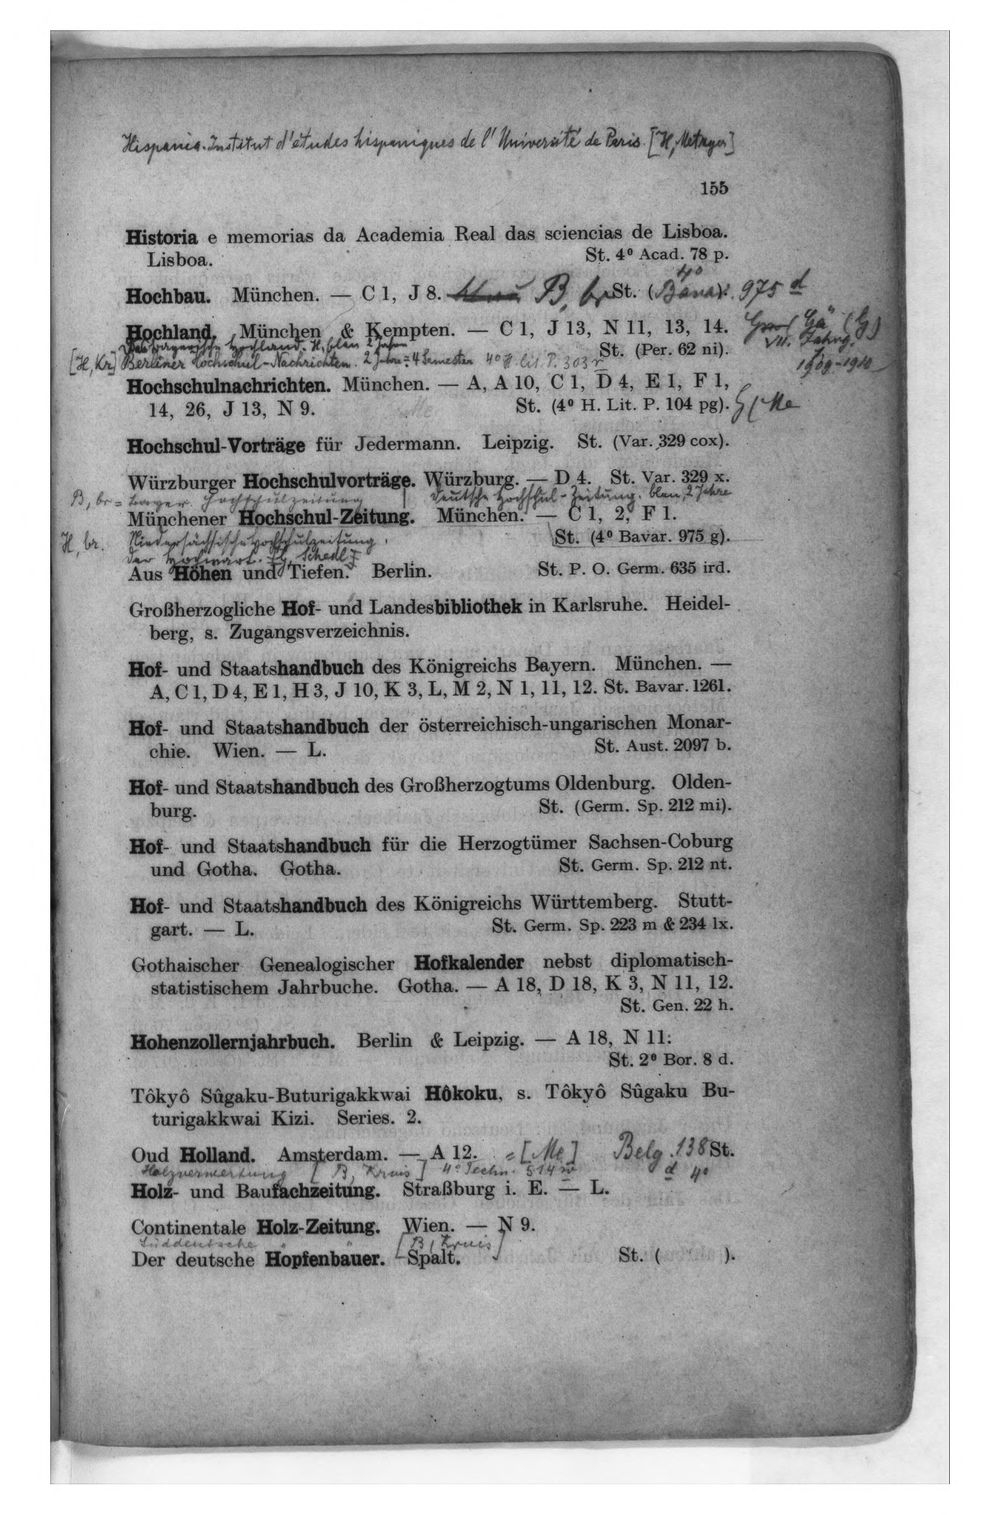 Hispania. Institut d'études hispaniques de l'Université de Paris. [H, Metzger]
155
Historia e memorias da Academia Real das sciencias de Lisboa.
Lisboa. St. 4⁰ Acad. 78 p.
Hochbau. München. — C 1, J 8. B, br St. (4⁰ Bavar. 975 d
Hochland. München & Kempten. — C 1, J 13, N 11, 13, 14.
VII. Jahrg.
Hochland. H, blau 2 Jahre
St. (Per. 62 ni).
1909-1910
[H, Kr] Berliner Hochschul-Nachrichten. 2 Jahre = 4 Semester 4⁰ H. lit. P. 303
Hochschulnachrichten. München. — A, A 10, C 1, D 4, E 1, F 1,
14, 26, J 13, N 9. St. (4⁰ H. Lit. P. 104 pg). Me
Hochschul-Vorträge für Jedermann. Leipzig. St. (Var. 329 cox).
Würzburger Hochschulvorträge. Würzburg. — D 4. St. Var. 329 x.
B, br = Hochschulzeitung
Deutsche Hochschul-Zeitung. blau, 2 Jahre
Münchener Hochschul-Zeitung. München. — C 1, 2, F 1.
St. (4⁰ Bavar. 975 g).
H, br. Niedersächsische Hochschulzeitung.
Der Hochwart.
Aus Höhen und Tiefen. Berlin. St. P. O. Germ. 635 ird.
Großherzogliche Hof- und Landesbibliothek in Karlsruhe. Heidel-
berg, s. Zugangsverzeichnis.
Hof- und Staatshandbuch des Königreichs Bayern. München. —
A, C 1, D 4, E 1, H 3, J 10, K 3, L, M 2, N 1, 11, 12. St. Bavar. 1261.
Hof- und Staatshandbuch der österreichisch-ungarischen Monar-
chie. Wien. — L. St. Aust. 2097 b.
Hof- und Staatshandbuch des Großherzogtums Oldenburg. Olden-
burg. St. (Germ. Sp. 212 mi).
Hof- und Staatshandbuch für die Herzogtümer Sachsen-Coburg
und Gotha. Gotha. St. Germ. Sp. 212 nt.
Hof- und Staatshandbuch des Königreichs Württemberg. Stutt-
gart. — L. St. Germ. Sp. 223 m & 234 lx.
Gothaischer Genealogischer Hofkalender nebst diplomatisch-
statistischem Jahrbuche. Gotha. — A 18, D 18, K 3, N 11, 12.
St. Gen. 22 h.
Hohenzollernjahrbuch. Berlin & Leipzig. — A 18, N 11.
St. 2⁰ Bor. 8 d.
Tôkyô Sûgaku-Buturigakkwai Hôkoku, s. Tôkyô Sûgaku Bu-
turigakkwai Kizi. Series. 2.
Oud Holland. Amsterdam. — A 12. = [Me] Belg. 138 d St.
4⁰
Holzverwertung [B, Kruis] 4⁰ Techn. 514
Holz- und Baufachzeitung. Straßburg i. E. — L.
Continentale Holz-Zeitung. Wien. — N 9.
Süddeutsche " " [B, Kruis]
Der deutsche Hopfenbauer. Spalt. St. ( ).